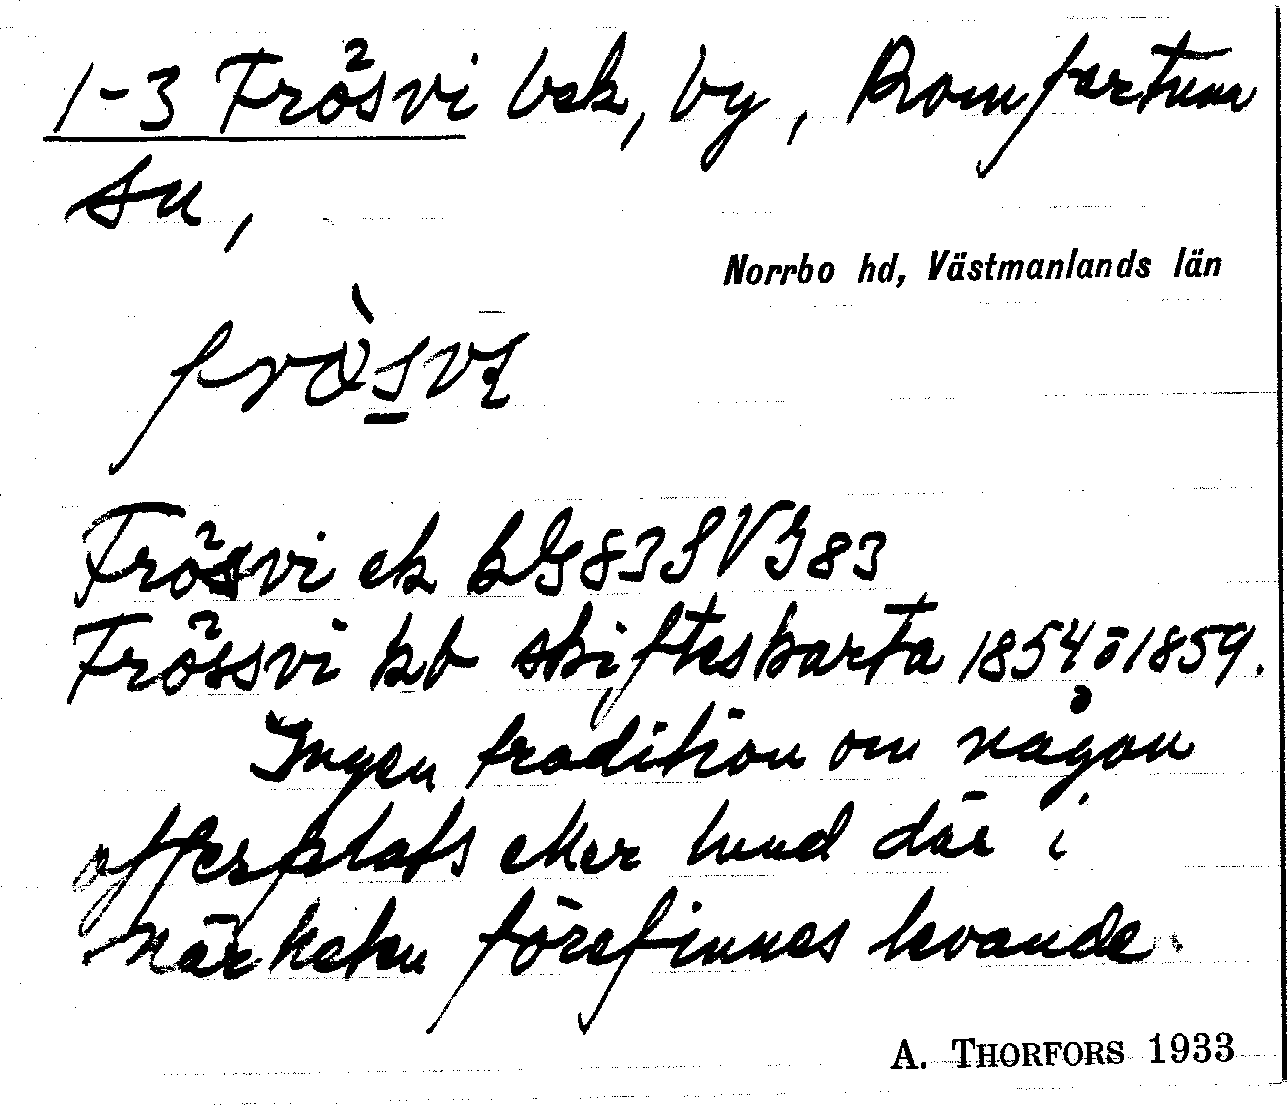 1-3 Frösvi bsk, by, Romfartuna
sn,
Norrbo hd, Västmanlands län
frö̀svi
Frösvi ek kG 83 SVG 83
Frössvi kb skifteskarta 1854 o 1859.
Ingen tradition om någon
offerplats eller lund där i
närheten förefinnes levande.
A. THORFORS 1933